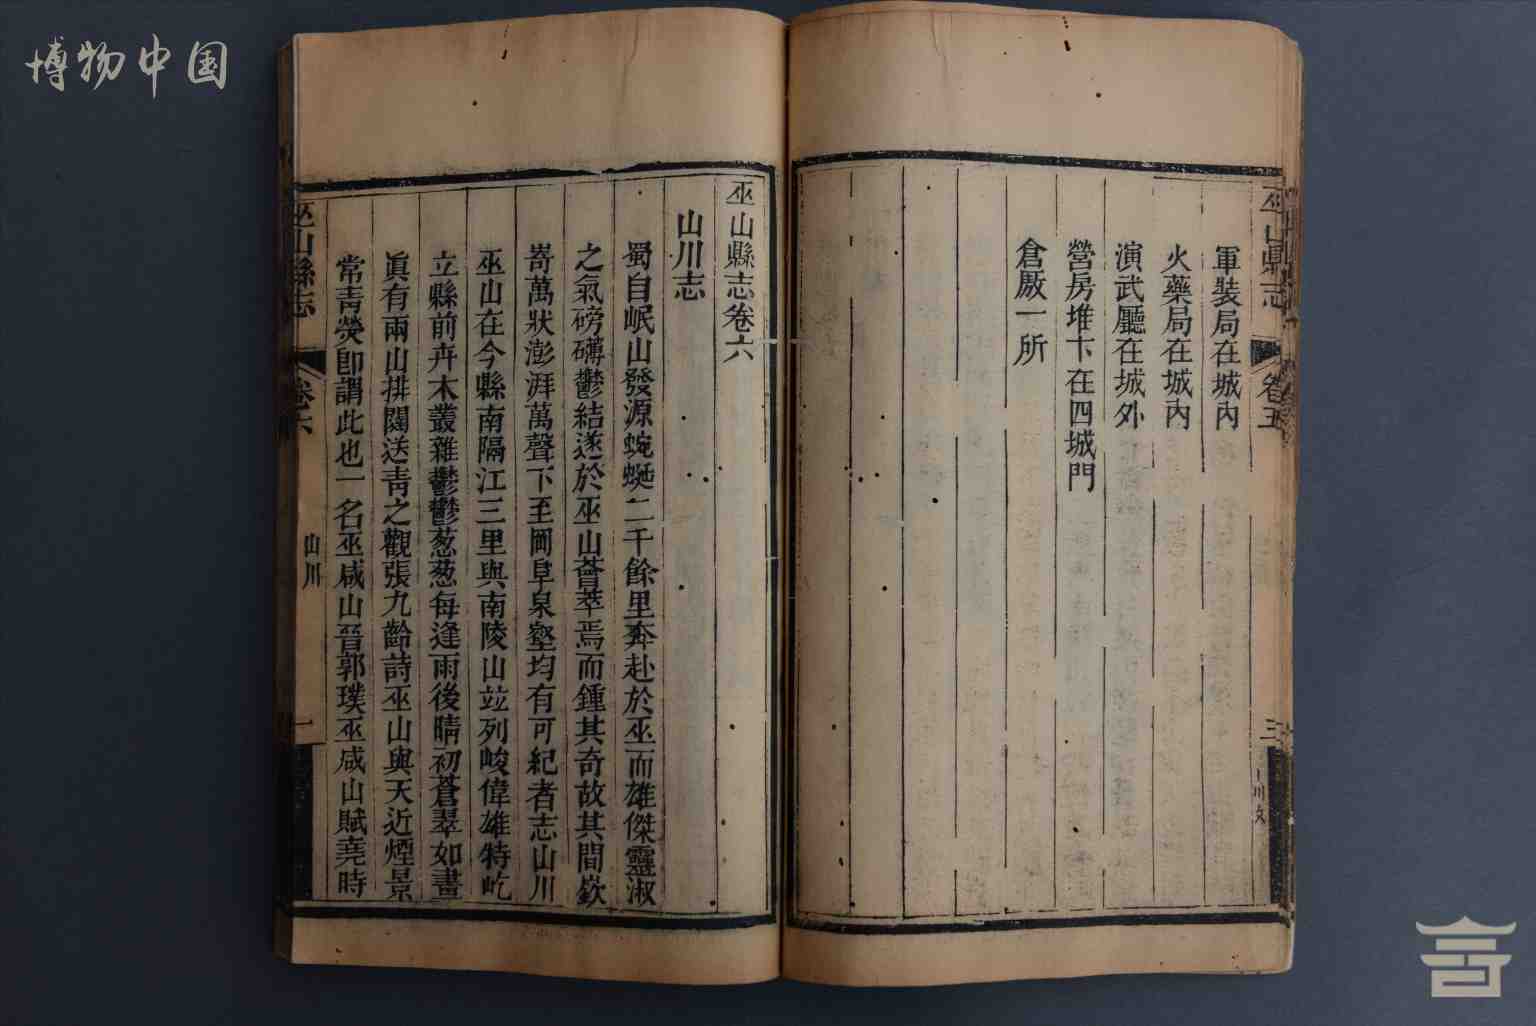 博物中国
巫山縣志
卷五
三
軍裝局在城內
火藥局在城內
演武廳在城外
營房堆卡在四城門
倉厫一所
巫山縣志卷六
山川志
蜀自岷山發源蜿蜒二千餘里奔赴於巫而雄傑靈淑
之氣磅礡鬱結遂於巫山薈萃焉而鍾其奇故其間嶔
嵜萬狀澎湃萬聲下至岡阜泉壑均有可紀者志山川
巫山在今縣南隔江三里與南陵山竝列峻偉雄特屹
立縣前卉木叢雜鬱鬱葱葱每逢雨後晴初蒼翠如畫
眞有兩山排闥送青之觀張九齡詩巫山與天近煙景
常青熒卽謂此也一名巫咸山晉郭璞巫咸山賦堯時
巫山縣志
卷六
山川
一